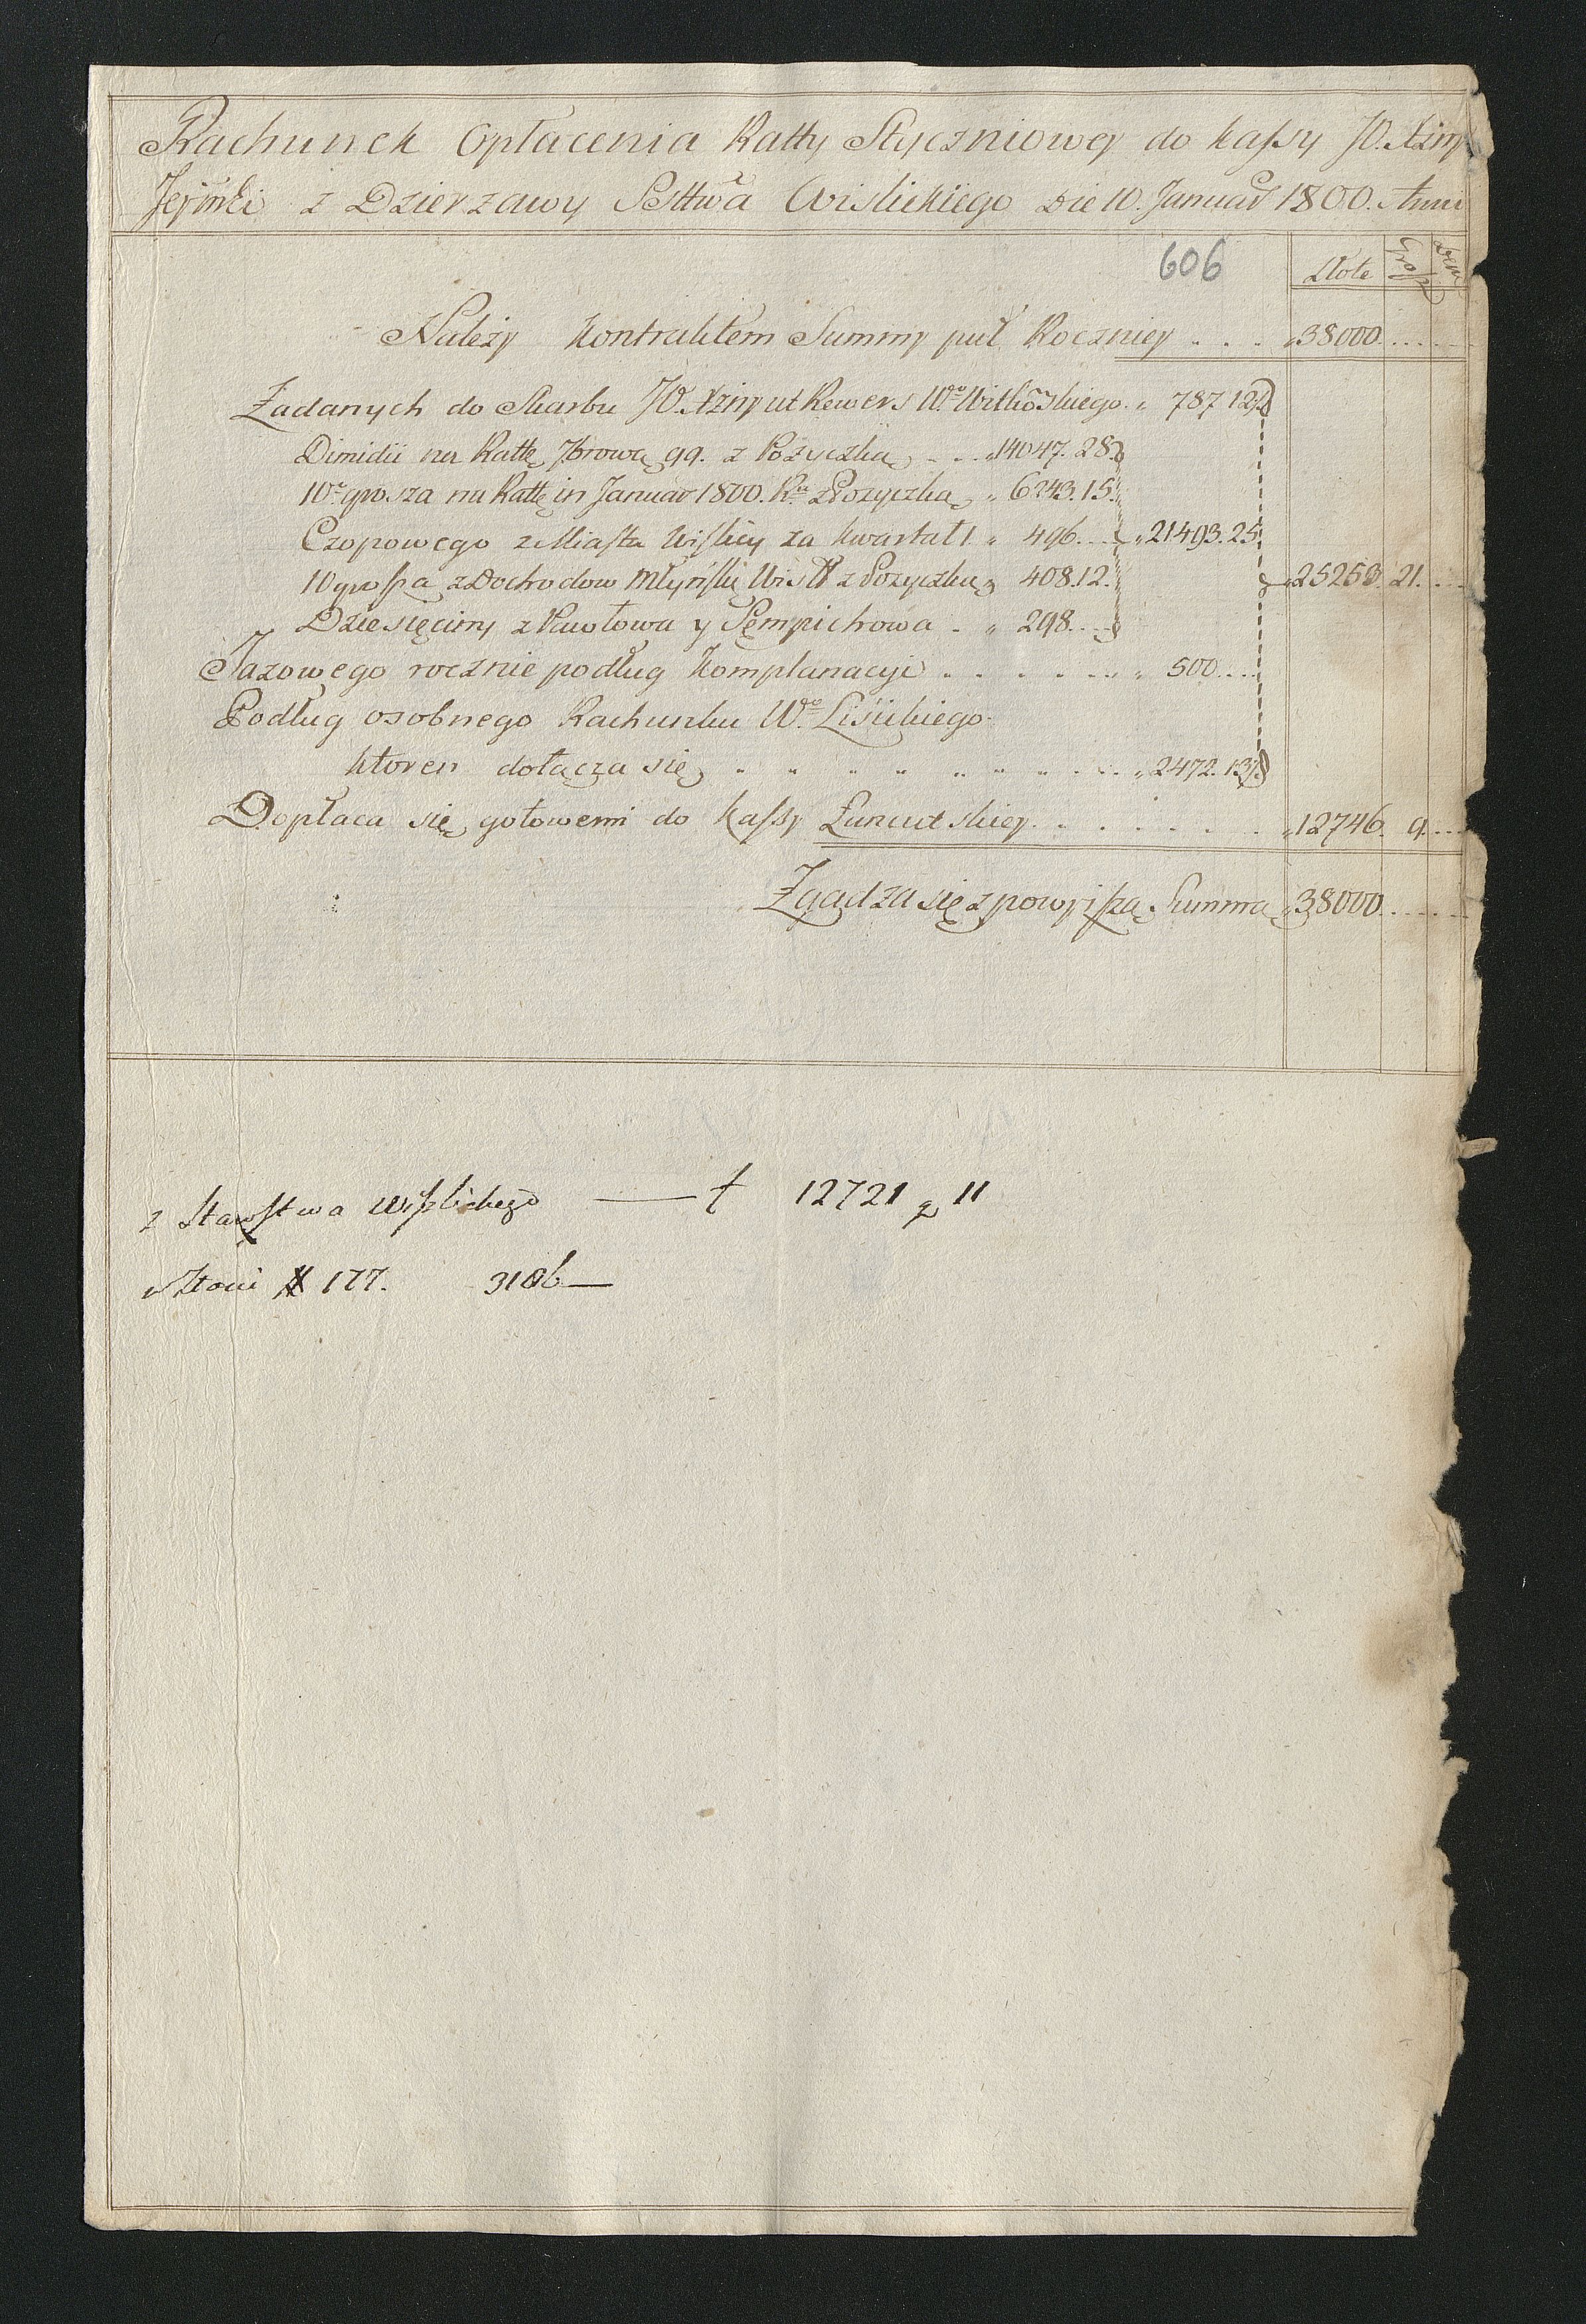 Rachunek Opłacenia Ratty Styczniowey do kassy JO. Xzny
Jeỹmki z Dzierzawy Sttwa Wislickiego Die 10. Januar 1800. Anni
606
Złote Grosze Den
Należy Kontraktem Summy puł Roczniey . . . " 38000. . . .
Zadanych do Skarbu JO. Xzny ut Rewers Wgo Witkoskiego. " 787 12½
Dimidii na Rattę 7browa 99. z Pożyczką . . . " 14047. 28.
10o grosza na Rattę in Januar 1800. Ru z Pożyczką " 6243. 15.
Czopowego z Miasta Wiślicy za kwartał 1. " 496. . . " 21493. 25.
10 grosza z Dochodow Młyńskich z Pożyczką 408. 12. 25253. 21. . .
Dziesięciny z Pawłowa y Sempichowa . " 298. . .
Jazowego rocznie podług Komplanacyi . . . . . . " 500. . .
Podług osobnego Rachunku Wgo Lisickiego
ktoren dołącza się . . . . . . . . " 2472. 13½
Dopłaca się gotowemi do kassy Łancutskiey . . . . . . " 12746. 9. . .
Zgadza się z powyiszą Summa " 38000. . . .
z Starostwa Wiślickiego — f 12721 g 11
177. 3186 —